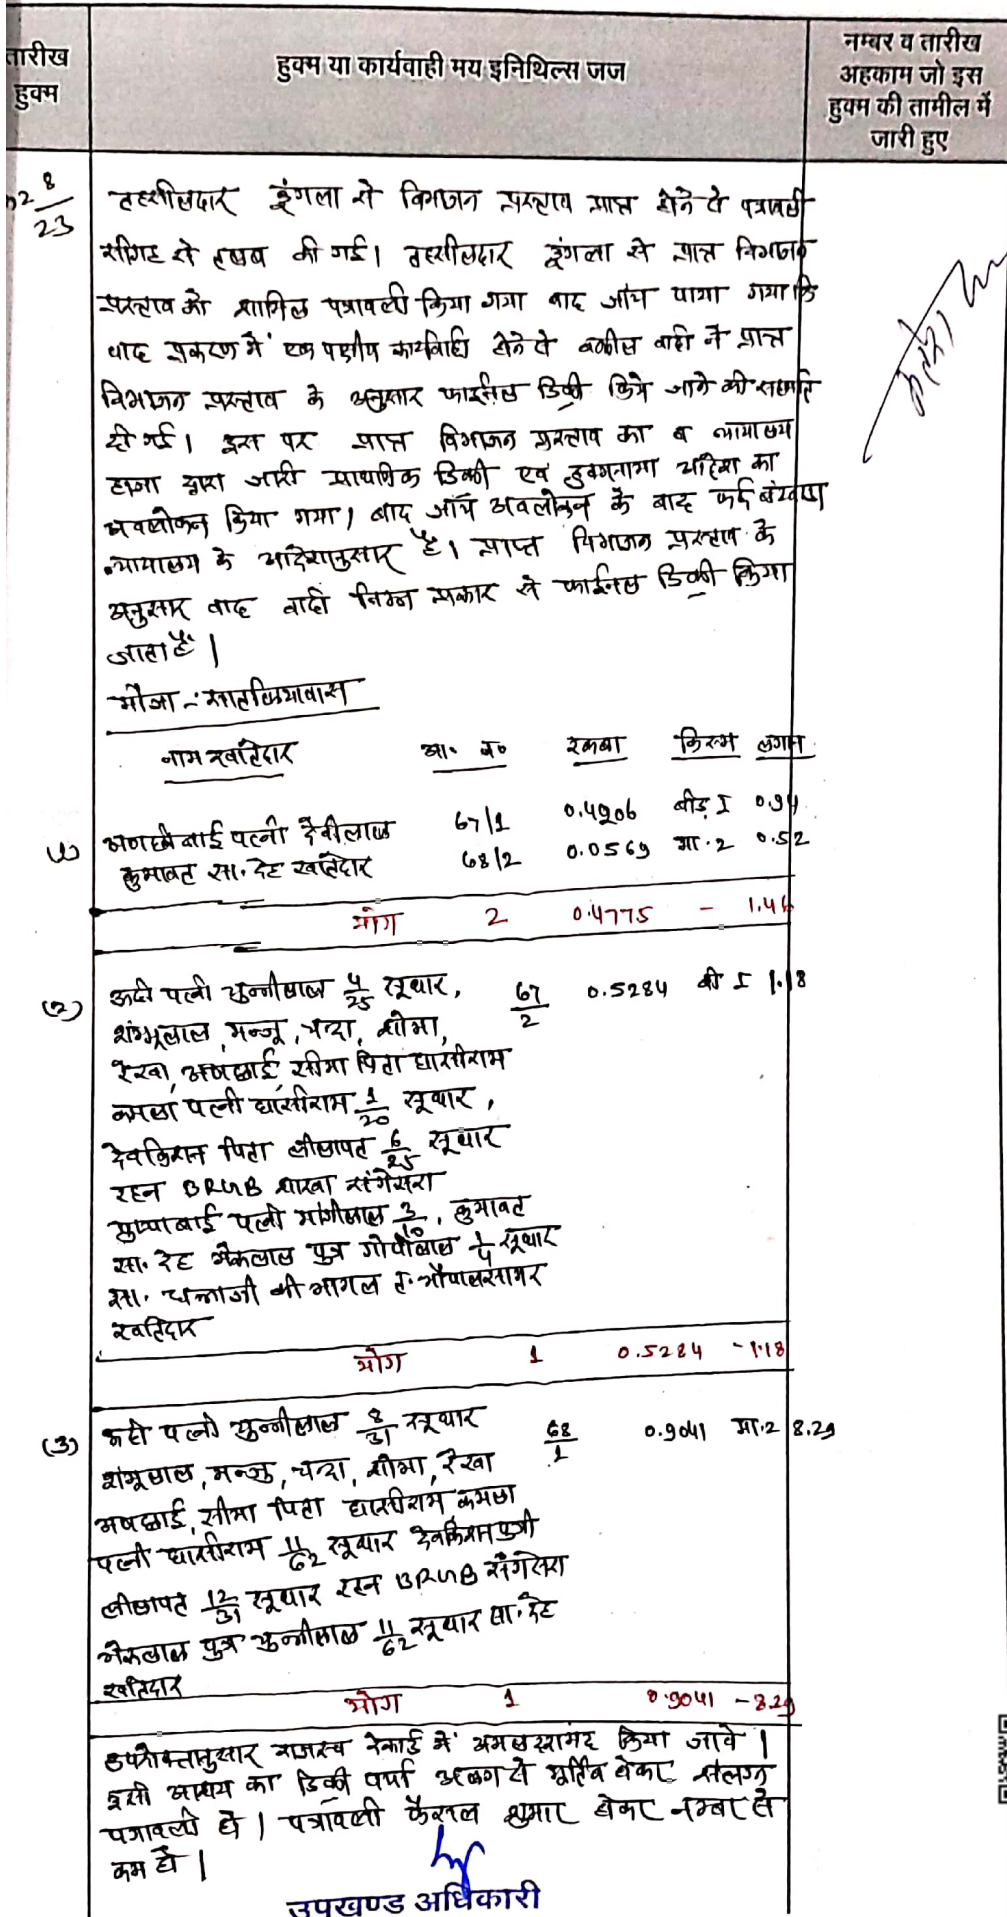 तारीख
हुक्म
हुक्म या कार्यवाही मय इनिथिल्स जज
नम्बर व तारीख
अहकाम जो इस
हुक्म की तामील में
जारी हुए
8
23
तहसीलदार डूंगला से विभाजन प्रस्ताव प्राप्त होने से पत्रावली
सीगह से तलब की गई। तहसीलदार डूंगला से प्राप्त विभाजन
प्रस्ताव को शामिल पत्रावली किया गया बाद जांच पाया गया कि
वाद प्रकरण में एक पक्षीय कार्यवाही होने से वकील वादी ने प्राप्त
विभाजन प्रस्ताव के अनुसार फाईनल डिक्री किये जाने की सहमति
दी गई। इस पर प्राप्त विभाजन प्रस्ताव का व न्यायालय
हाजा द्वारा जारी प्राथमिक डिक्री एवं हुक्मनामा आदेश का
अवलोकन किया गया। बाद जाँच अवलोकन के बाद
न्यायालय के आदेशानुसार है। प्राप्त विभाजन प्रस्ताव के
अनुसार वाद वादी निम्न प्रकार से फाईनल डिक्री किया
जाता है।
मौजा :-
नाम खातेदार आ. न. रकबा किस्म लगान
(1) पत्नी देवीलाल 67/1 0.4206 बीड़ I 0.94
कुमावत सा. देह खातेदार 68/2 0.0569 मा.2 0.52
योग 2 0.4775 - 1.46
(2) पत्नी चुन्नीलाल 4/25 सूथार, 67/2 0.5284 बी I 1.18
शंभूलाल, मन्जू, चन्दा, शोभा,
रेखा, सीमा पिता घासीराम
कमला पत्नी घासीराम 1/20 सूथार,
देवकिशन पिता 6/25 सूथार
रहन BRGB शाखा संगेसरा
पुष्पाबाई पत्नी मांगीलाल 3/10, कुमावत
सा. देह भैरूलाल पुत्र गोपीलाल 1/4 सूथार
सा. की भागल त. भोपालसागर
खातेदार
योग 1 0.5284 - 1.18
(3) पत्नी चुन्नीलाल 8/31 सूथार 68/1 0.9041 मा.2 8.29
शंभूलाल, मन्जू, चन्दा, शोभा, रेखा
सीमा पिता घासीराम, कमला
पत्नी घासीराम 11/62 सूथार देवकिशन
12/31 सूथार रहन BRGB संगेसरा
भैरूलाल पुत्र चुन्नीलाल 11/62 सूथार सा. देह
खातेदार
योग 1 0.9041 - 8.29
उपरोक्तानुसार राजस्व रेकार्ड में अमल दरामद किया जावे।
इसी आशय का डिक्री पर्चा अलग से मुर्तिब होकर संलग्न
पत्रावली हो। पत्रावली फैसल शुमार होकर नम्बर से
कम हो।
उपखण्ड अधिकारी